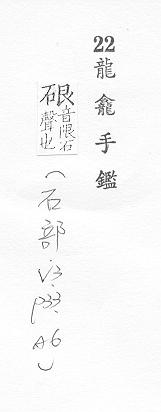 22龍龕手鑑
硍音限石聲也
(石部.v3.p33.A6)